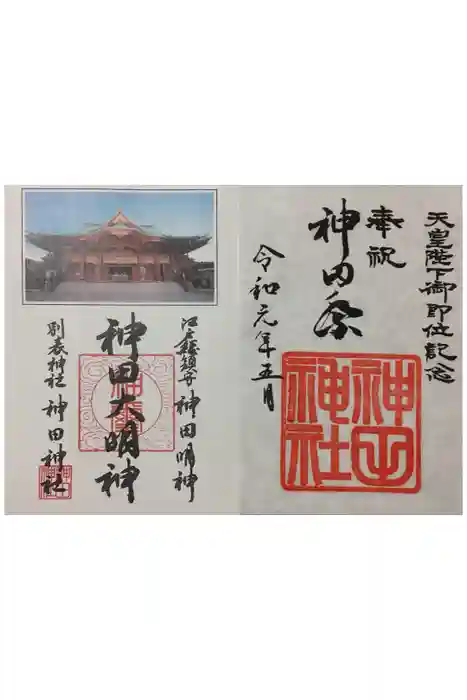 天皇陛下御即位記念
奉祝
神田祭
令和元年五月
神田
神社
江戸総鎮守 神田明神
神田大明神
別表神社 神田神社